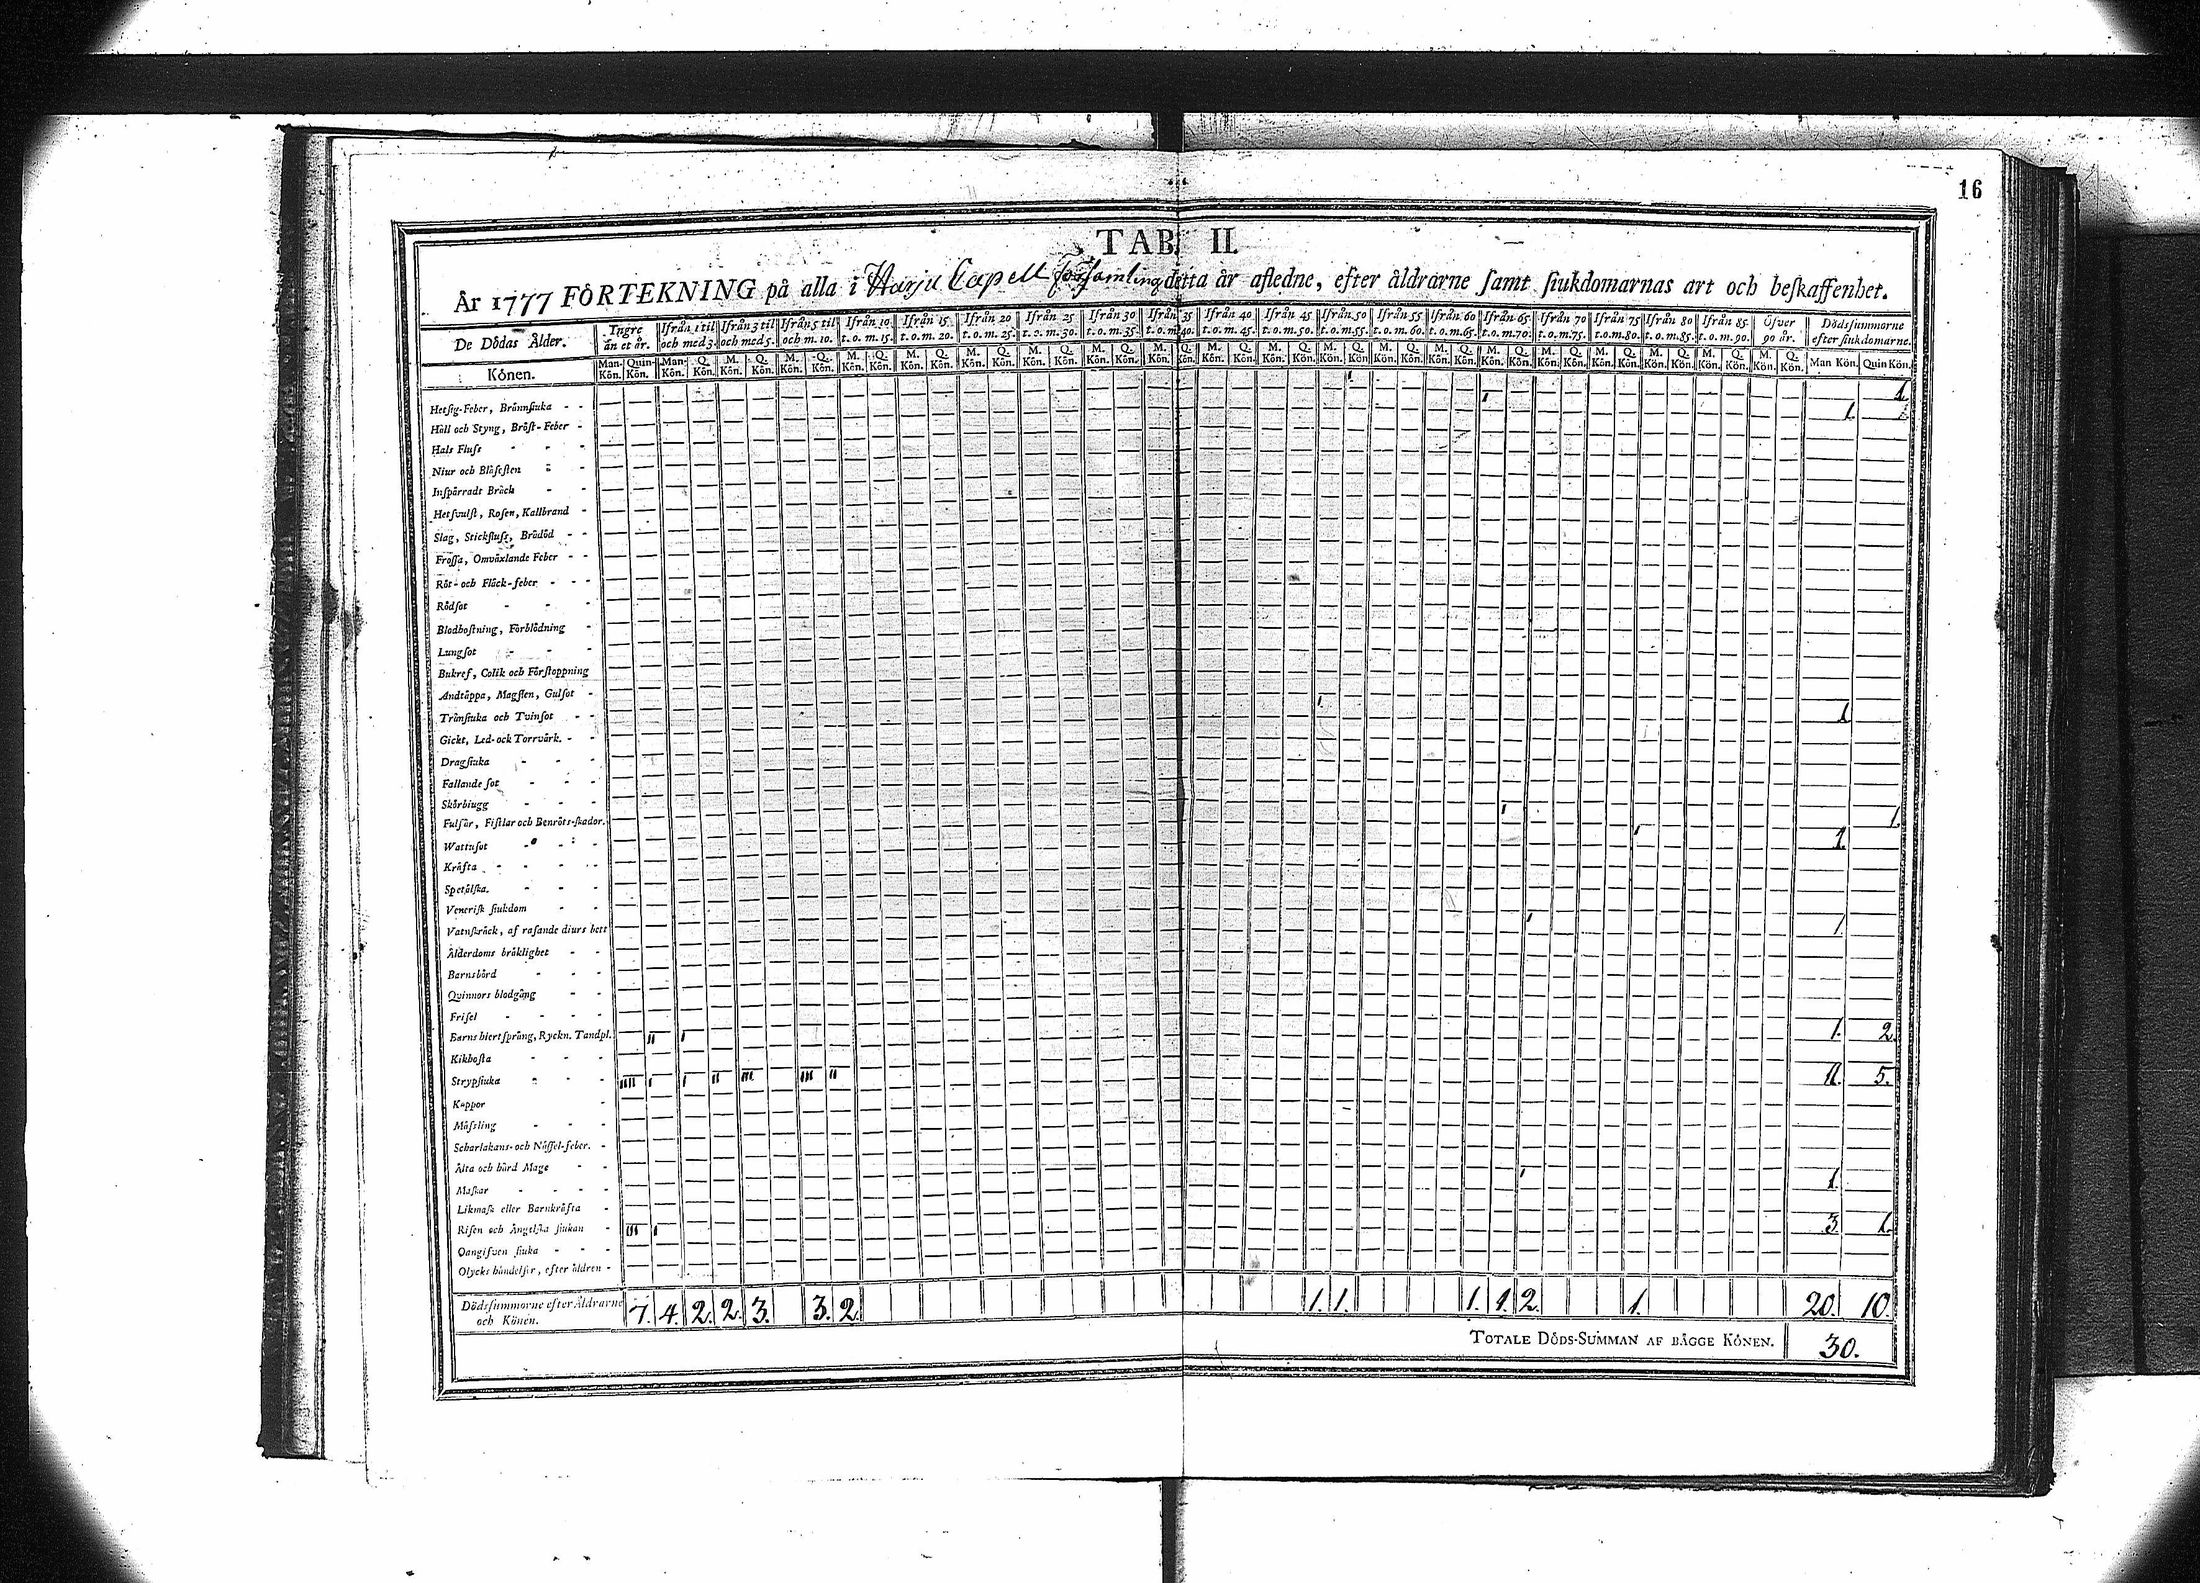 16
TAB. II.
År 1777 FÖRTEKNING på alla i Harju Capell församling detta år afledne, efter åldrarne samt siukdomarnas art och beskaffenhet.
De Dödas Ålder. Yngre än et år. Ifrån 1 til och med 3. Ifrån 3 til och med 5. Ifrån 5 til och m. 10. Ifrån 10 t. o. m. 15. Ifrån 15 t. o. m. 20. Ifrån 20 t. o. m. 25. Ifrån 25 t. o. m. 30. Ifrån 30 t. o. m. 35. Ifrån 35 t. o. m. 40. Ifrån 40 t. o. m. 45. Ifrån 45 t. o. m. 50. Ifrån 50 t. o. m. 55. Ifrån 55 t. o. m. 60. Ifrån 60 t. o. m. 65. Ifrån 65 t. o. m. 70. Ifrån 70 t. o. m. 75. Ifrån 75 t. o. m. 80. Ifrån 80 t. o. m. 85. Ifrån 85 t. o. m. 90. Öfver 90 år. Dödssummorne efter siukdomarne.
Könen. Man Kön. Quin Kön. Man Kön. Q. Kön. M. Kön. Q. Kön. M. Kön. Q. Kön. M. Kön. Q. Kön. M. Kön. Q. Kön. M. Kön. Q. Kön. M. Kön. Q. Kön. M. Kön. Q. Kön. M. Kön. Q. Kön. M. Kön. Q. Kön. M. Kön. Q. Kön. M. Kön. Q. Kön. M. Kön. Q. Kön. M. Kön. Q. Kön. M. Kön. Q. Kön. M. Kön. Q. Kön. M. Kön. Q. Kön. M. Kön. Q. Kön. M. Kön. Q. Kön. M. Kön. Q. Kön. Man Kön. Quin Kön.
Hetsig-Feber, Brännsiuka 1.
Håll och Styng, Bröst-Feber 1.
Hals Fluss
Niur och Blåsesten
Inspärradt Bråck
Hetsvulst, Rosen, Kallbrand
Slag, Stickfluss, Brådöd
Frossa, Omväxlande Feber
Röt- och Fläck-feber
Rödsot
Blodhostning, Förblödning
Lungsot
Bukref, Colik och Förstoppning
Andtäppa, Magsten, Gulsot
Trånsiuka och Tvinsot 1
Gickt, Led- ock Torrvärk.
Dragsiuka
Fallande sot
Skörbiugg
Fulsår, Fistlar och Benröts-skador. 1.
Wattusot 1.
Kräfta
Spetälska.
Venerisk siukdom
Vatnskräck, af rasande diurs bett 1
Ålderdoms bräklighet
Barnsbörd
Quinnors blodgång
Frisel
Barns hiertsprång, Ryckn. Tandpl. II I 1. 2.
Kikhosta
Strypsiuka IIII I I II III III II 11. 5.
Koppor
Mässling
Scharlakans- och Nässel-feber.
Älta och hård Mage
Maskar 1.
Likmask eller Barnkräfta
Risen och Ängelska siukan III I 3. 1.
Oangifven siuka
Olycks händelser, efter åldren
Dödssummorne efter Åldrarne och Könen. 7. 4. 2. 2. 3. 3. 2. 1. 1. 1. 1. 2. 1. 20. 10.
TOTALE DÖDS-SUMMAN AF BÄGGE KÖNEN. 30.